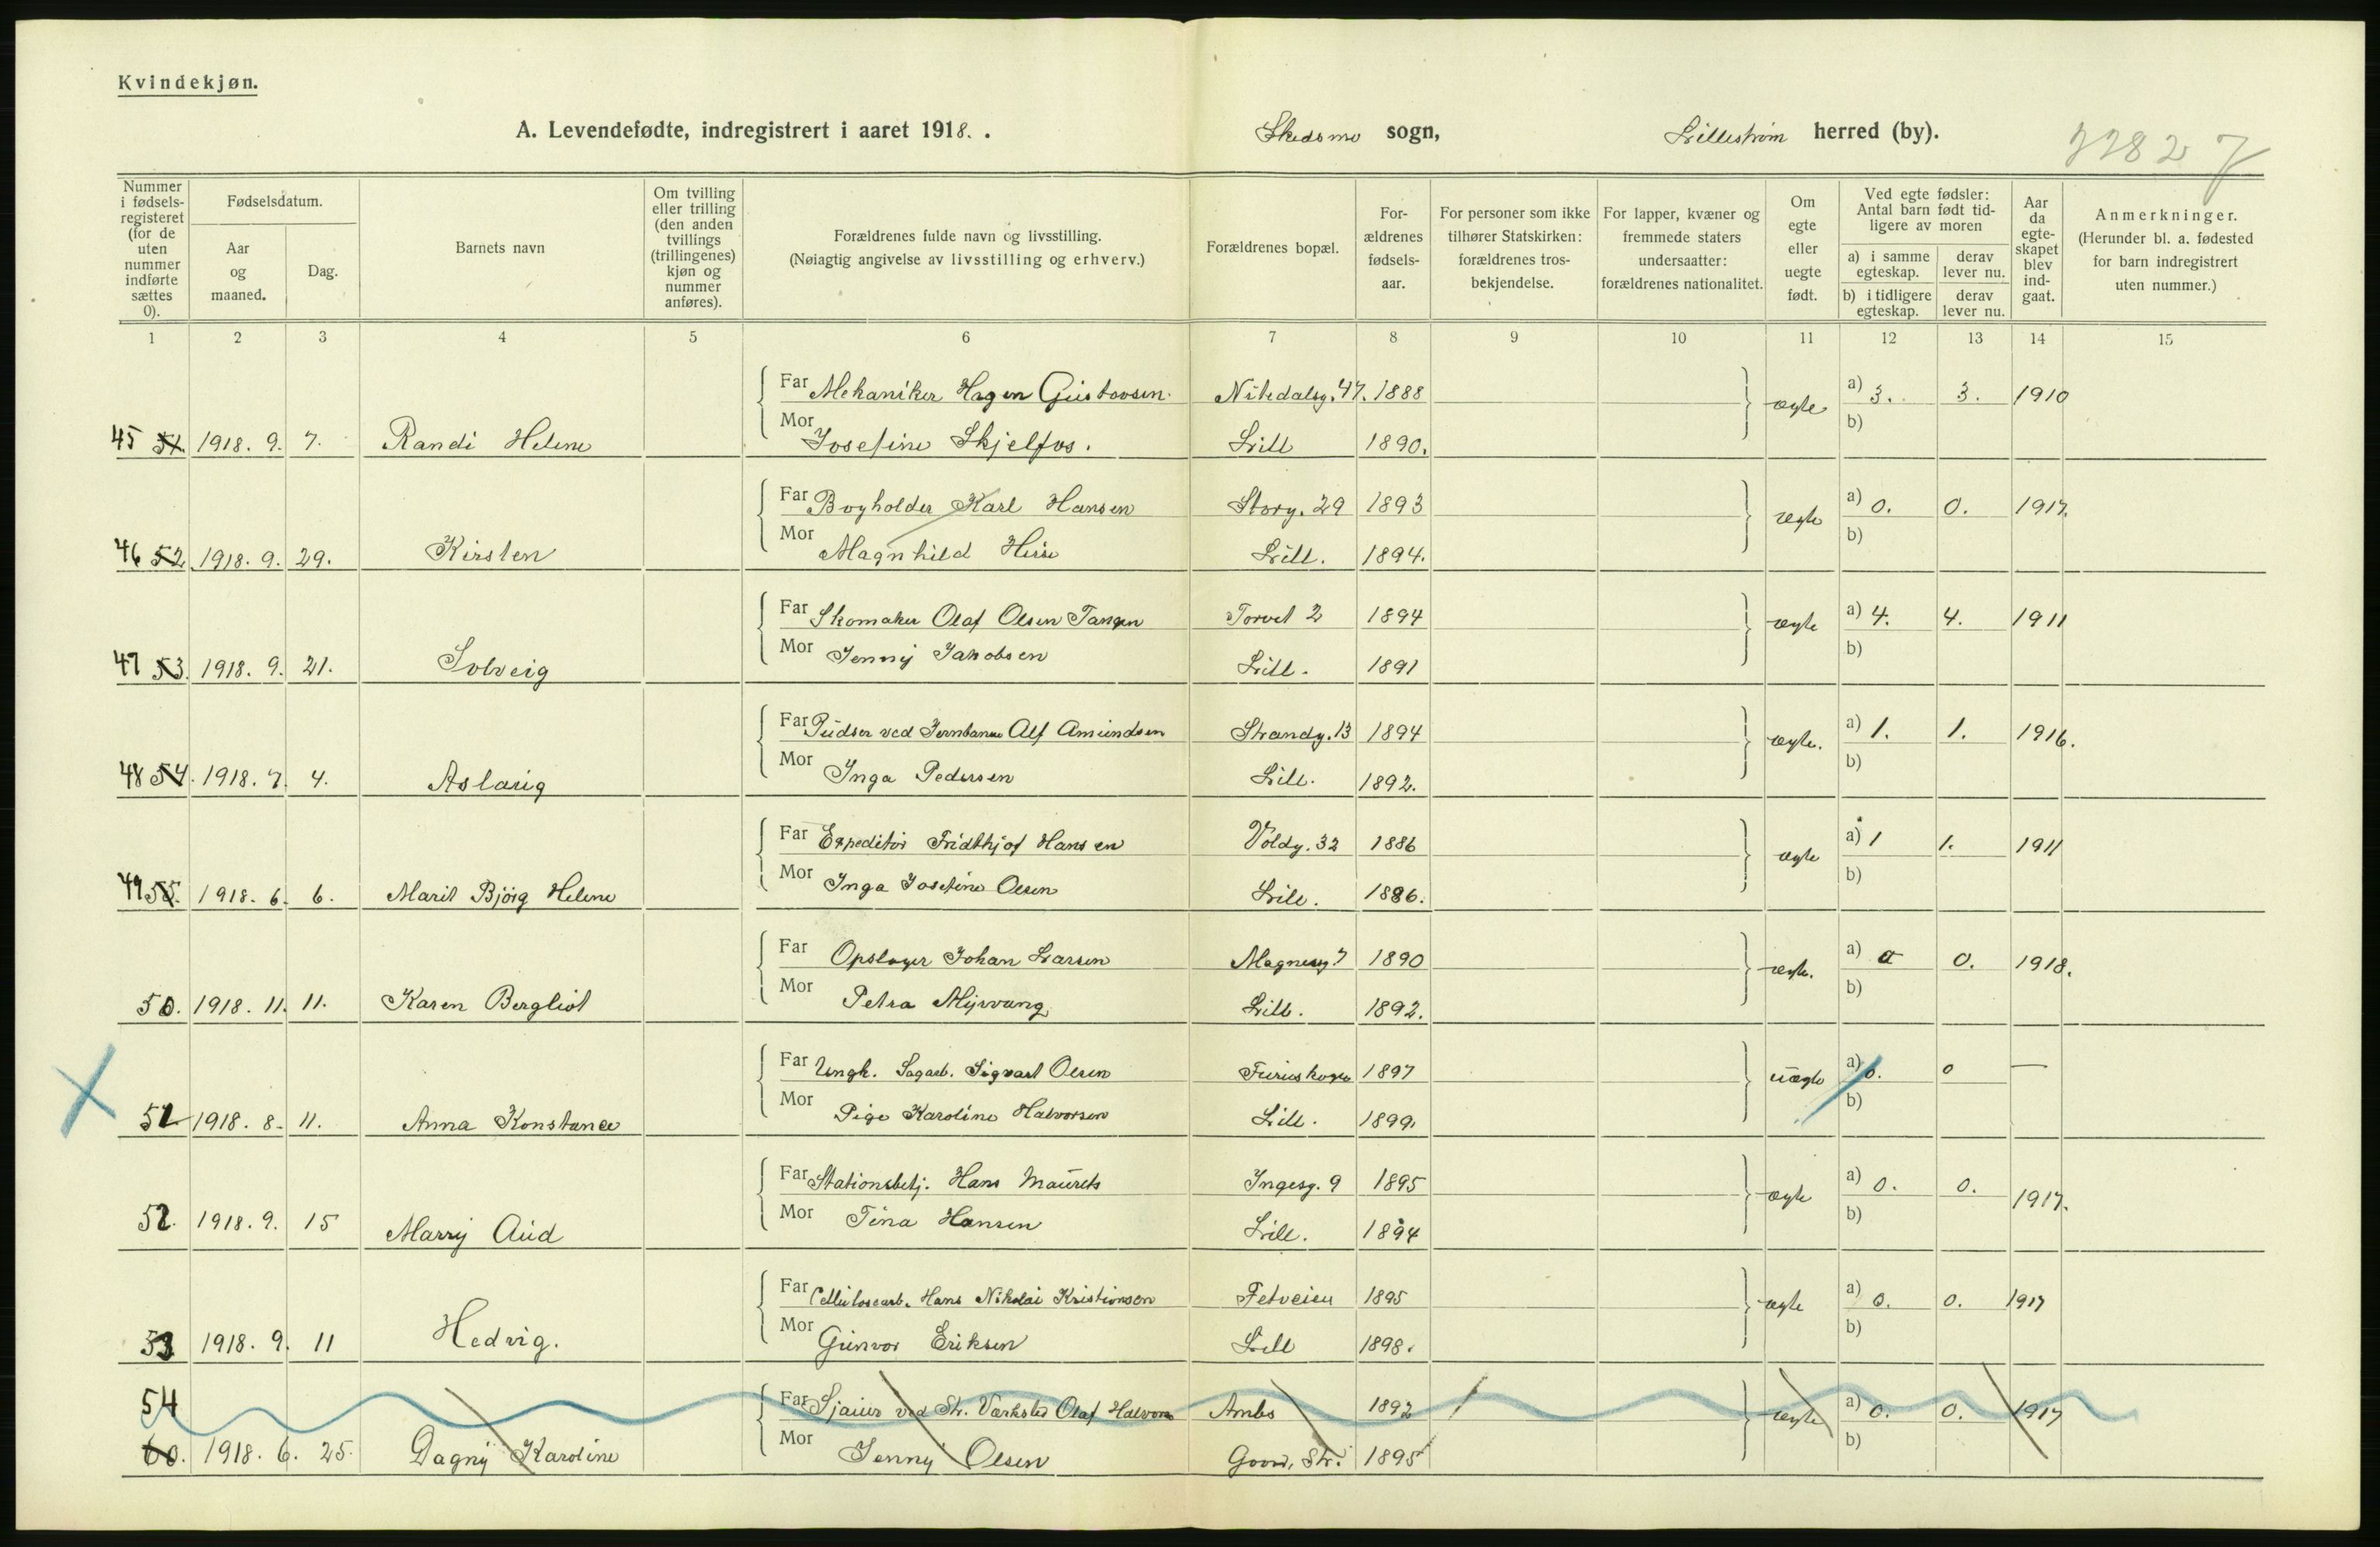 Kvindekjøn.
A. Levendefødte, indregistrert i aaret 1918. .
Skedsmo sogn,
Lillestrøm herred (by).
Nummer i fødselsregisteret (for de uten nummer indførte sættes 0).
Fødselsdatum.
Aar og maaned.
Dag.
Barnets navn
Om tvilling eller trilling (den anden tvillings (trillingenes) kjøn og nummer anføres).
Forældrenes fulde navn og livsstilling.
(Nøiagtig angivelse av livsstilling og erhverv.)
Forældrenes bopæl.
Forældrenes fødselsaar.
For personer som ikke tilhører Statskirken: forældrenes trosbekjendelse.
For lapper, kvæner og fremmede staters undersaatter: forældrenes nationalitet.
Om egte eller uegte født.
Ved egte fødsler: Antal barn født tidligere av moren
a) i samme egteskap.
derav lever nu.
b) i tidligere egteskap.
derav lever nu.
Aar da egteskapet blev indgaat.
Anmerkninger.
(Herunder bl. a. fødested for barn indregistrert uten nummer.)
1 2 3 4 5 6 7 8 9 10 11 12 13 14 15
Far Mekaniker Hagen Gustavsen. Nitedalsg. 47. 1888 ægte a) 3. 3. 1910
45 51 1918. 9. 7. Randi Helene Mor Josefine Skjelfos. Lill 1890. b)
Far Bogholder Karl Hansen Storg. 29 1893 ægte a) 0. 0. 1917.
46 52 1918. 9. 29. Kirsten Mor Magnhild Lill. 1894. b)
Far Skomaker Olaf Olsen Tangen Torvet 2 1894 ægte a) 4. 4. 1911
47 53. 1918. 9. 21. Solveig Mor Jenny Jakobsen Lill. 1891 b)
Far Pudser ved Jernbanen Alf Amundsen Strandg. 13 1894 ægte. a) 1. 1. 1916.
48 54. 1918. 7. 4. Aslaug Mor Inga Pedersen Lill. 1892. b)
Far Expeditør Fridthjof Hansen Voldg. 32 1886 ægte a) 1 1. 1911
49 55. 1918. 6. 6. Marit Bjørg Helene Mor Inga Josefine Olsen Lill. 1886. b)
Far Johan Larsen Magnesg 7 1890 ægte. a) 0 0. 1918.
50. 1918. 11. 11. Karen Bergliot Mor Petra Myrvang Lill. 1892. b)
Far Ungk. Sagarb. Sigvart Olsen 1897 uægte a) 0. 0 —
51 1918. 8. 11. Anna Konstance Mor Pige Karoline Halvorsen Lill. 1899. b)
Far Stationsbetj. Hans Maurits Ingesg. 9 1895 ægte a) 0. 0. 1917.
52. 1918. 9. 15 Marry Aud Mor Tina Hansen Lill. 1894 b)
Far Cellulosearb. Hans Nikolai Kristiansen Fetveien 1895 ægte a) 0. 0. 1917
53 1918. 9. 11 Hedvig. Mor Gunvor Eriksen Lill 1898. b)
54 Far ved Str. Værksted Olaf Halvors 1892 ægte a) 0. 0. 1917
60. 1918. 6. 25. Dagny Karoline Mor Jenny Olsen 1895 b)